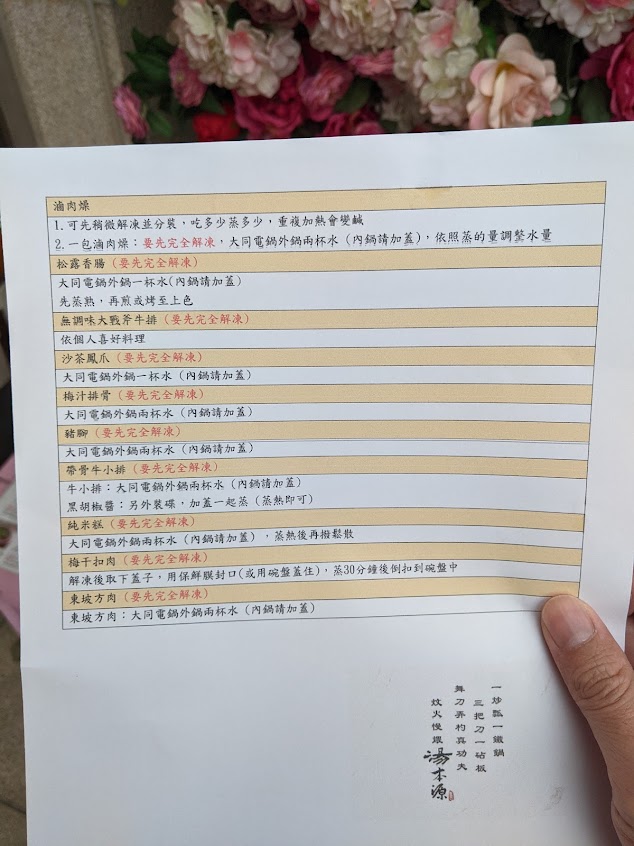 滷肉燥
1. 可先稍微解凍並分裝，吃多少蒸多少，重複加熱會變鹹
2. 一包滷肉燥：要先完全解凍，大同電鍋外鍋兩杯水 (內鍋請加蓋)，依照蒸的量調整水量
松露香腸 (要先完全解凍)
大同電鍋外鍋一杯水(內鍋請加蓋)
先蒸熱，再煎或烤至上色
無調味大戰斧牛排 (要先完全解凍)
依個人喜好料理
沙茶鳳爪 (要先完全解凍)
大同電鍋外鍋一杯水 (內鍋請加蓋)
梅汁排骨 (要先完全解凍)
大同電鍋外鍋兩杯水 (內鍋請加蓋)
豬腳 (要先完全解凍)
大同電鍋外鍋兩杯水 (內鍋請加蓋)
帶骨牛小排 (要先完全解凍)
牛小排：大同電鍋外鍋兩杯水 (內鍋請加蓋)
黑胡椒醬：另外裝碟，加蓋一起蒸 (蒸熱即可)
純米糕 (要先完全解凍)
大同電鍋外鍋兩杯水 (內鍋請加蓋) ，蒸熱後再撥鬆散
梅干扣肉 (要先完全解凍)
解凍後取下蓋子，用保鮮膜封口(或用碗盤蓋住)，蒸30分鐘後倒扣到碗盤中
東坡方肉 (要先完全解凍)
東坡方肉：大同電鍋外鍋兩杯水 (內鍋請加蓋)
一炒瓢一鐵鍋
三把刀一砧板
舞刀弄杓真功夫
炊火慢燉
湯本源